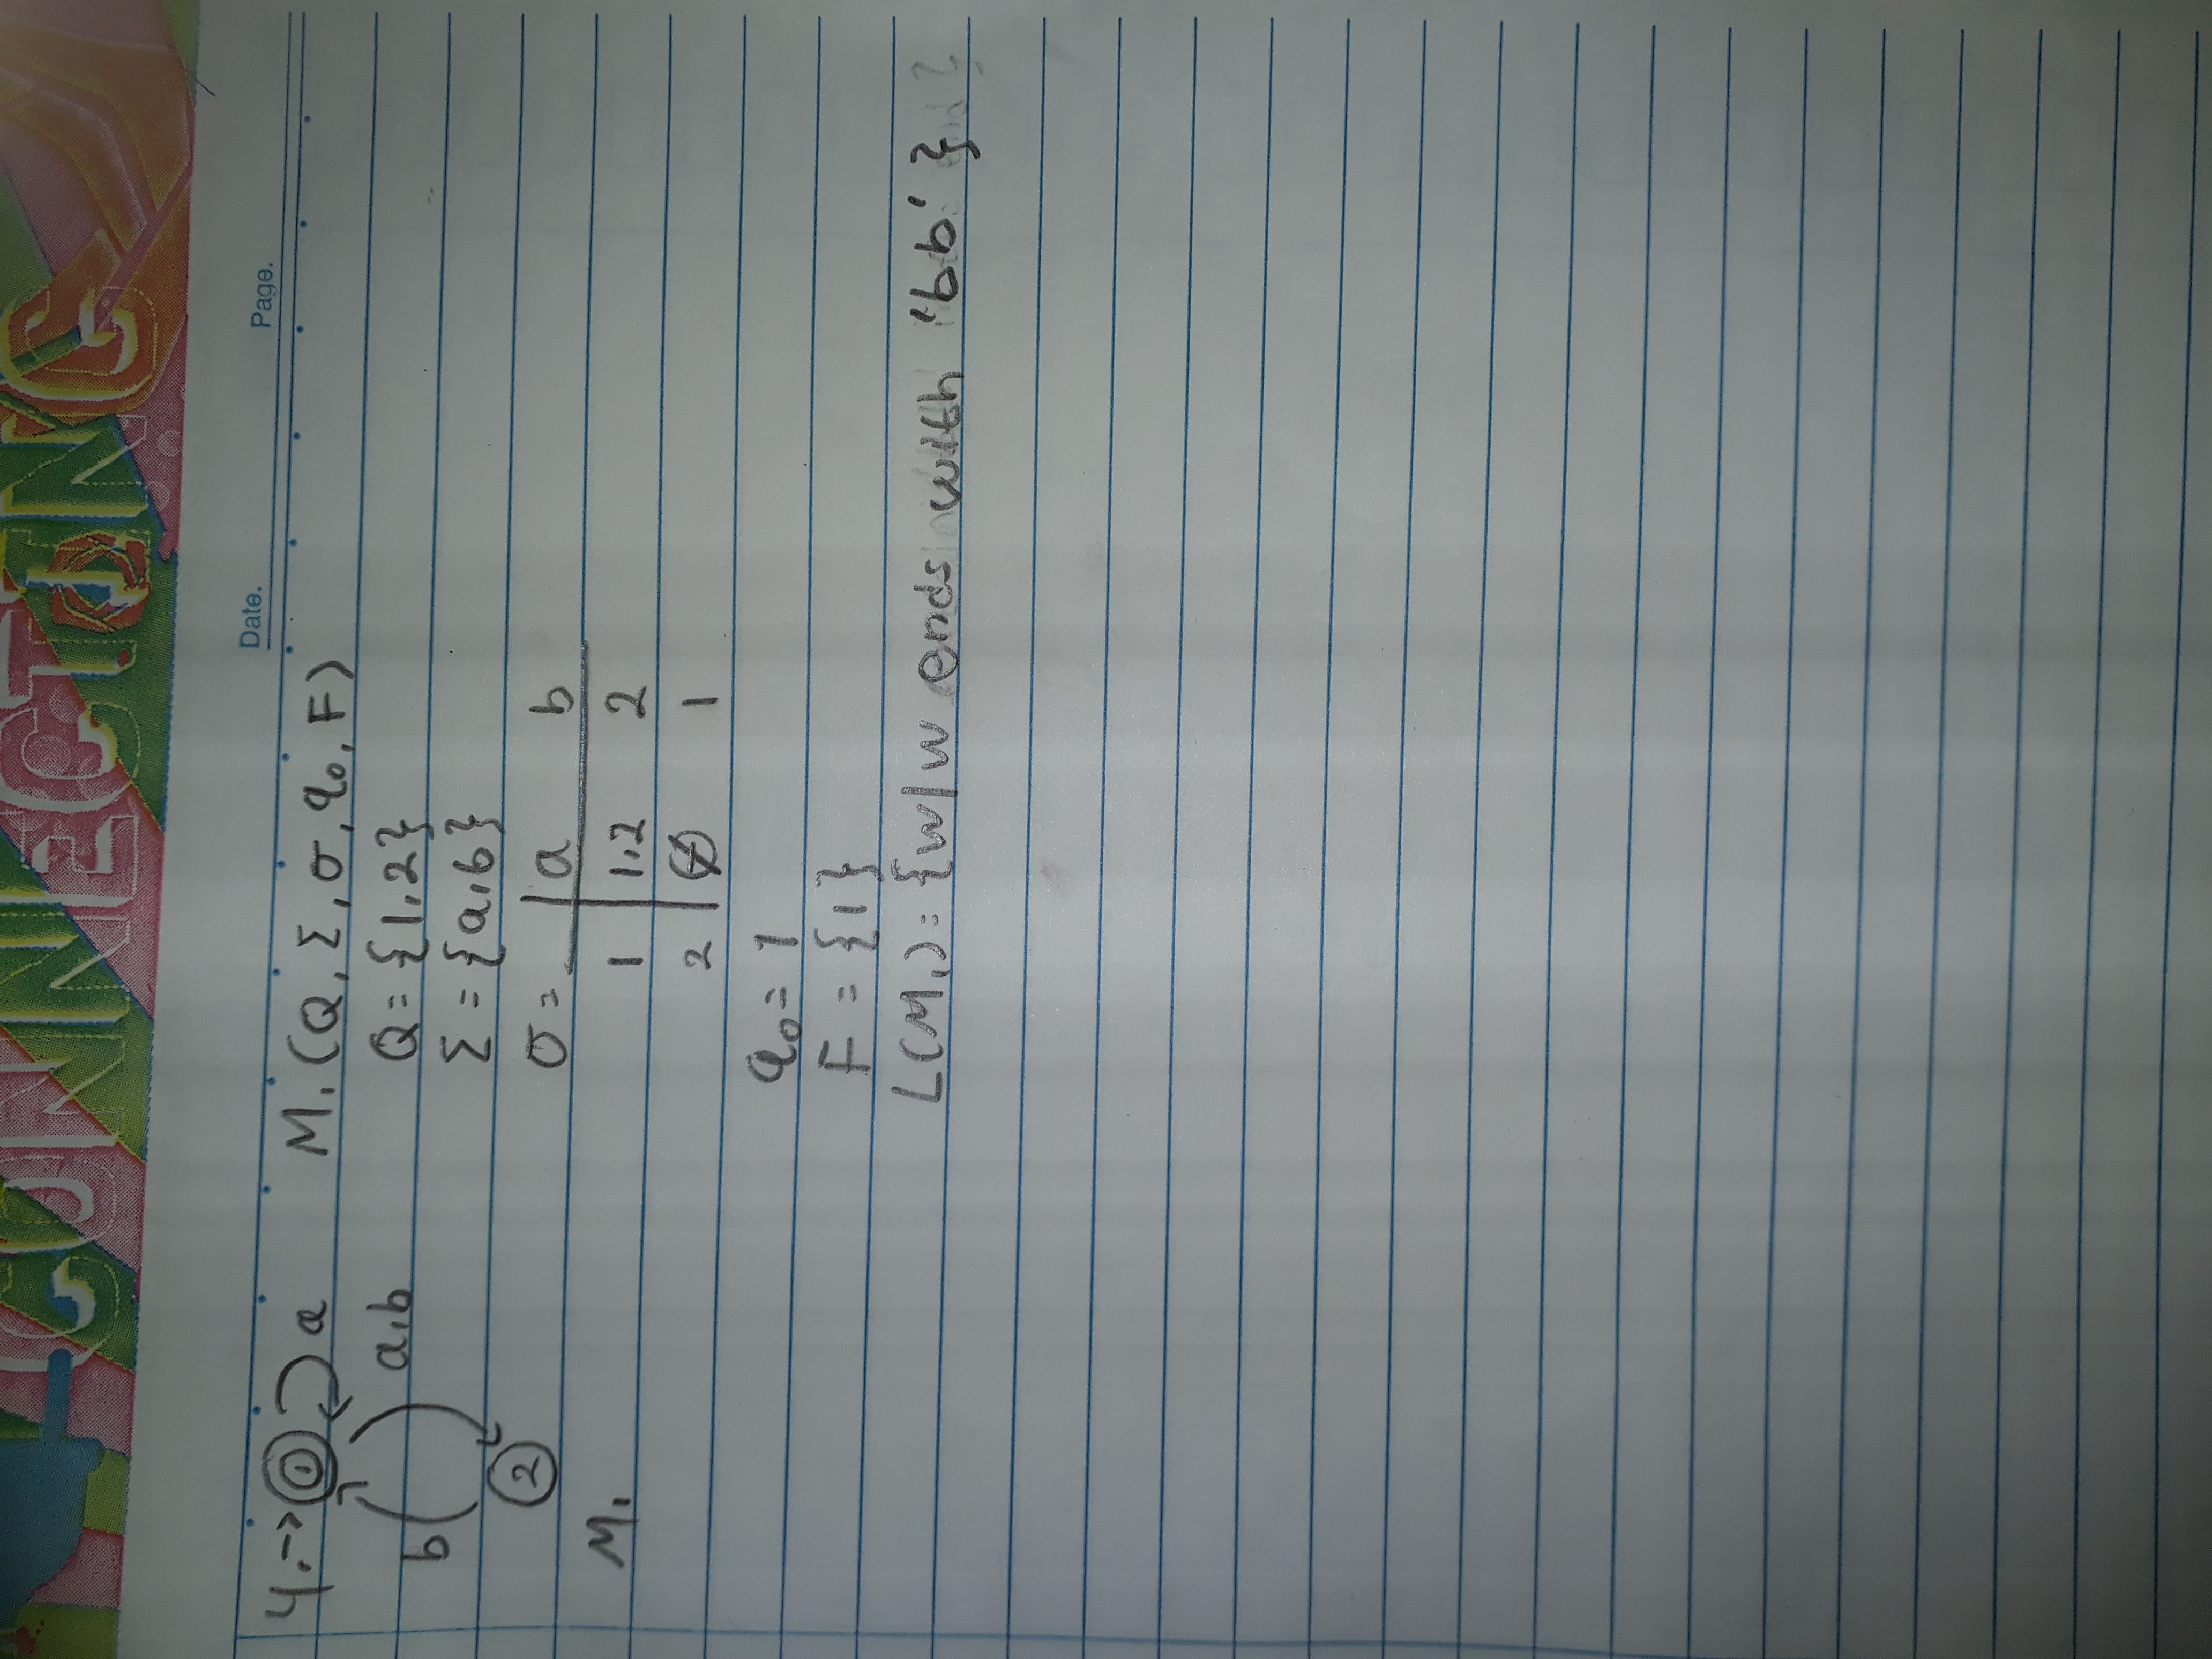 CONNECTING
Date. Page.
4. → 1 a
a,b
b
2
M₁
M₁ (Q, Σ, σ, q₀, F)
Q = {1,2}
Σ = {a,b}
σ = a b
1 1,2 2
2 ∅ 1
q₀ = 1
F = {1}
L(M₁) = {w/w ends with 'bb'}